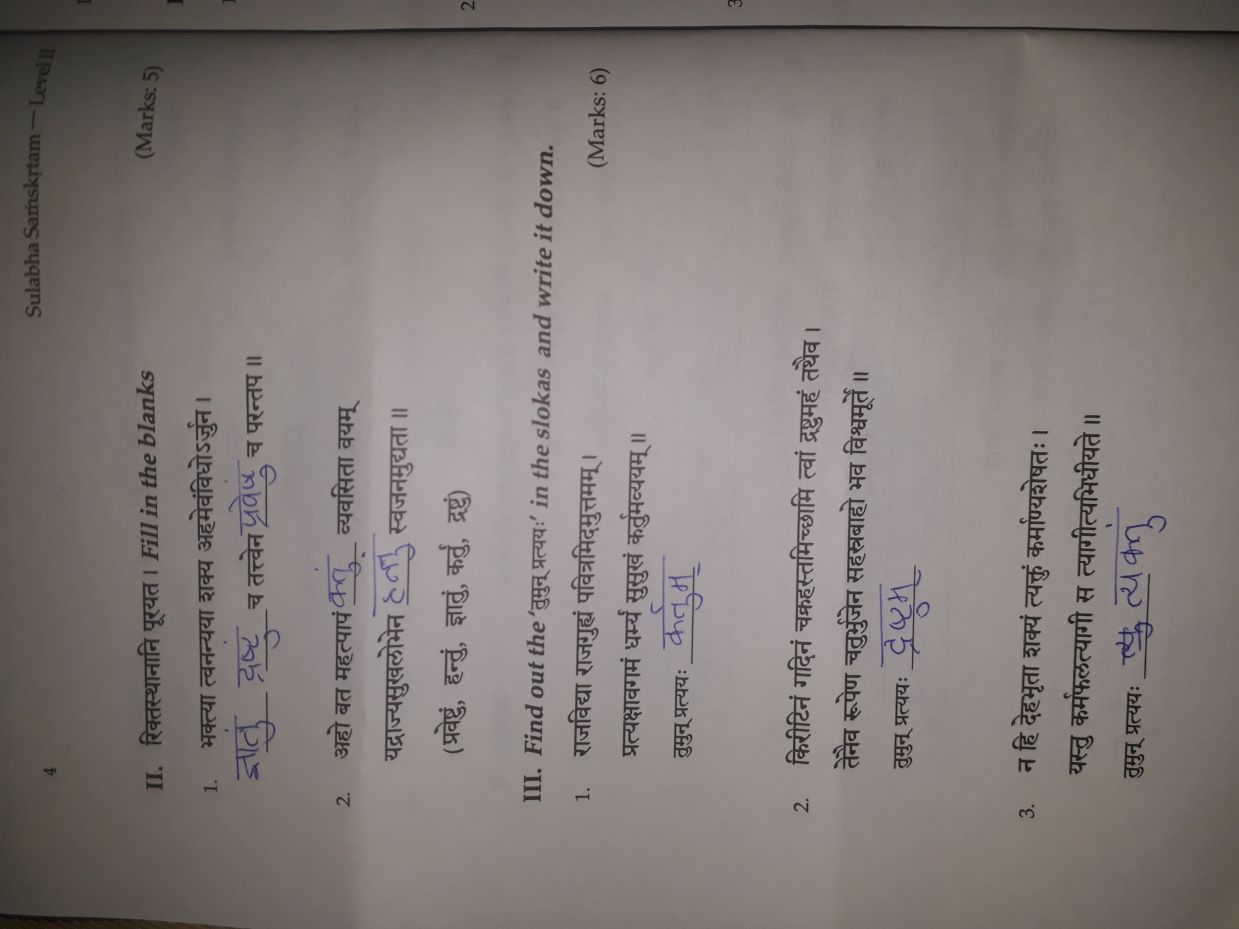 4
Sulabha Saṁskṛtam — Level II
II. रिक्तस्थानानि पूरयत । Fill in the blanks (Marks: 5)
1. भक्त्या त्वनन्यया शक्य अहमेवंविधोऽर्जुन ।
ज्ञातुं द्रष्टुं च तत्त्वेन प्रवेष्टुं च परन्तप ॥
2. अहो बत महत्पापं कतुं व्यवसिता वयम्
यद्राज्यसुखलोभेन हन्तुं स्वजनमुद्यता ॥
(प्रवेष्टुं, हन्तुं, ज्ञातुं, कर्तुं, द्रष्टुं)
III. Find out the ‘तुमुन् प्रत्ययः’ in the slokas and write it down.
(Marks: 6)
1. राजविद्या राजगुह्यं पवित्रमिदमुत्तमम् ।
प्रत्यक्षावगमं धर्म्यं सुसुखं कर्तुमव्ययम् ॥
तुमुन् प्रत्ययः कर्तुम्
2. किरीटिनं गदिनं चक्रहस्तमिच्छामि त्वां द्रष्टुमहं तथैव ।
तेनैव रूपेण चतुर्भुजेन सहस्रबाहो भव विश्वमूर्ते ॥
तुमुन् प्रत्ययः द्रष्टुम्
3. न हि देहभृता शक्यं त्यक्तुं कर्माण्यशेषतः ।
यस्तु कर्मफलत्यागी स त्यागीत्यभिधीयते ॥
तुमुन् प्रत्ययः त्यक्तुं
2
3